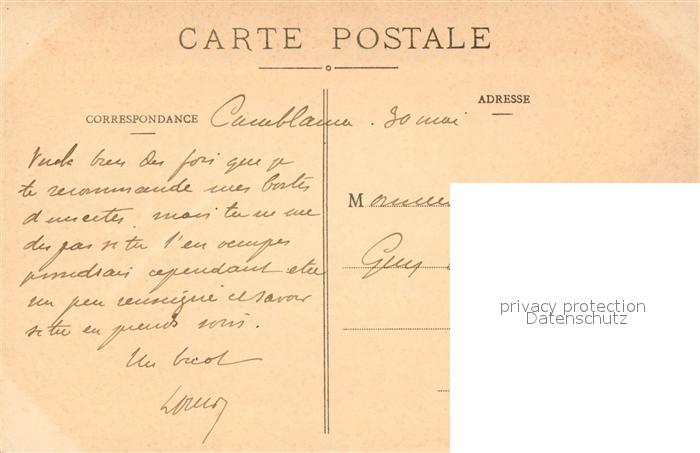 CARTE POSTALE
CORRESPONDANCE
ADRESSE
Casablanca . 30 mai
bien des fois que je
te recommande mes boites
d'insectes mais tu ne me
dis pas si tu t'en occupes
voudrais cependant etre
un peu renseigné et savoir
si tu en prends soin .
Un bécot
Monsieur
Guy
privacy protection
Datenschutz